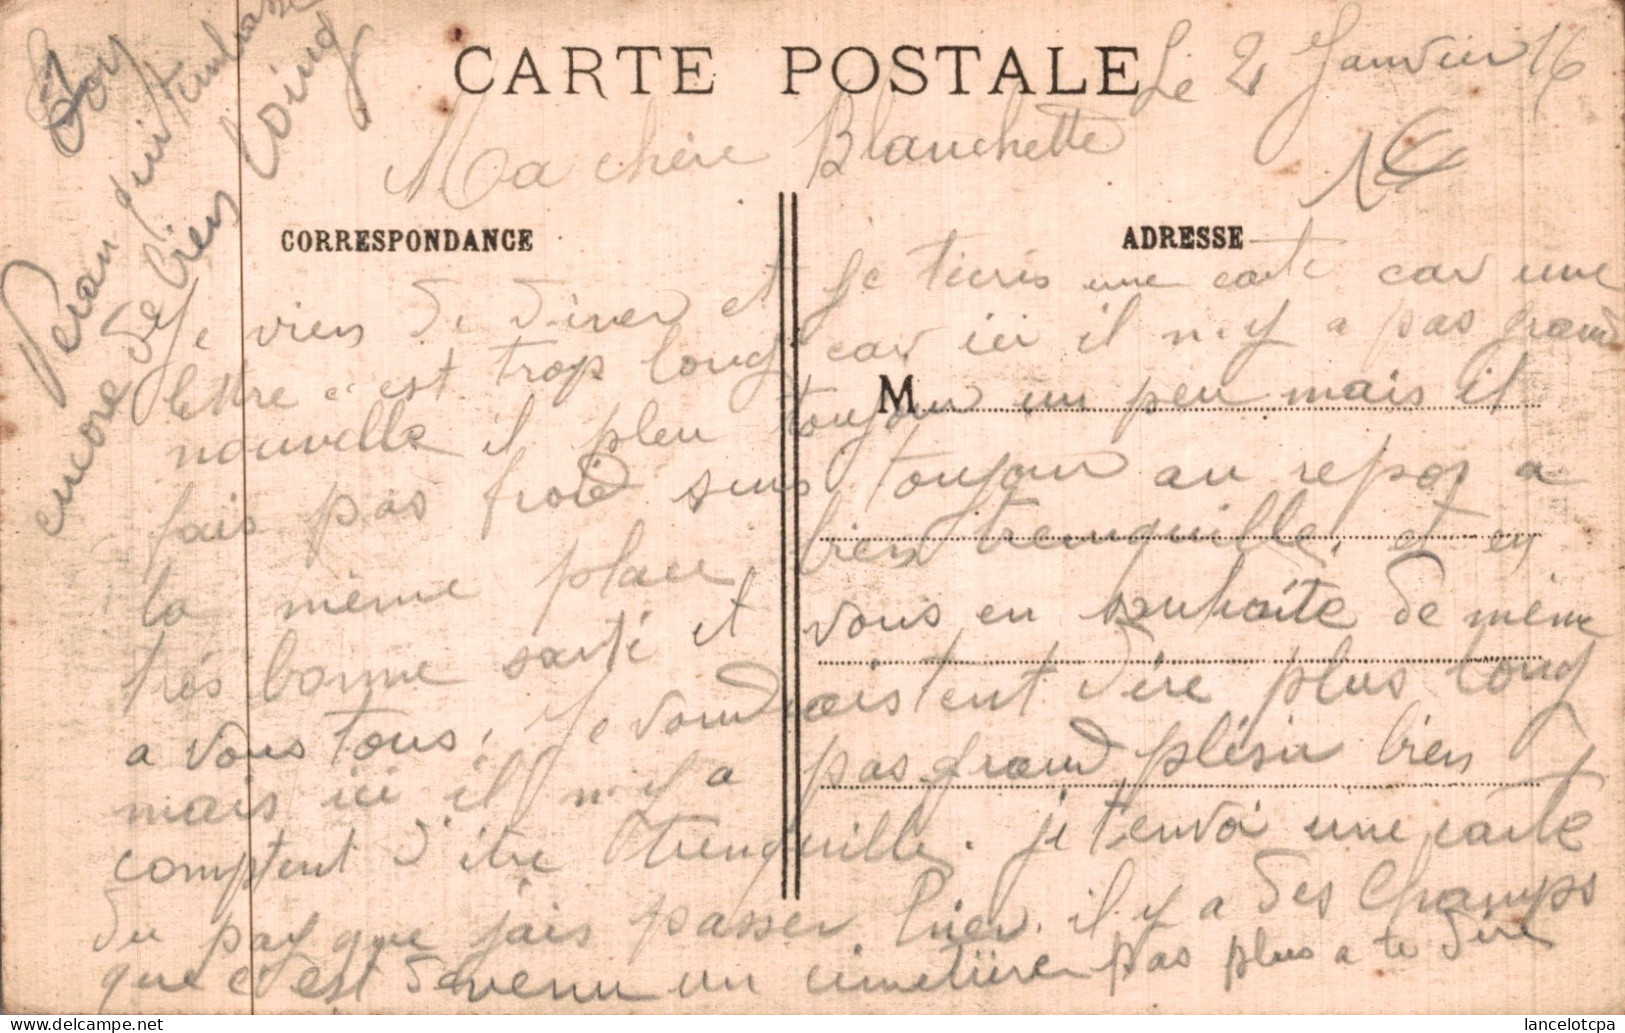 CARTE POSTALE
Le 2 Janvier 16
Ma chère Blanchette
CORRESPONDANCE
ADRESSE
Je vien de diner et je t'ecris une carte car une
lettre c'est trop long car ici il n.y a pas grand
M
nouvelle il pleu toujour un peu mais il
fais pas froid suis toujour au repos a
la même place bien trenquille. et en
très bonne santé et vous en souhaite de même
a vous tous, Je voudrais tent dire plus long
mais ici il n.y a pas grand plésir bien
comptent d'être trenquille. je t'envoi une carte
du pay que j'ais passer hier. il y a des champs
que c'est devenu un cimetiire pas plus a te dire
Ton
Peran qui t'embrasse
encore de bien loing
lancelotcpa